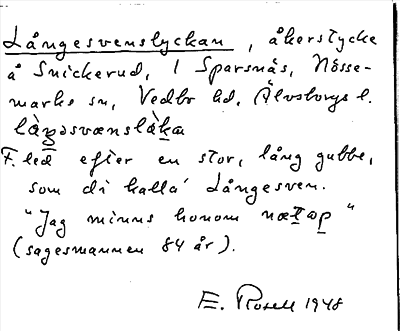 Långesvenslyckan, åkerstycke
å Snickerud, i Sparsnäs, Nösse-
marks sn, Vedbo hd, Älvsborgs l.
F. led efter en stor, lång gubbe,
som di kalla' Långesven.
"Jag minns honom næt⁠ap"
(sagesmannen 84 år).
E. Rosell 1948